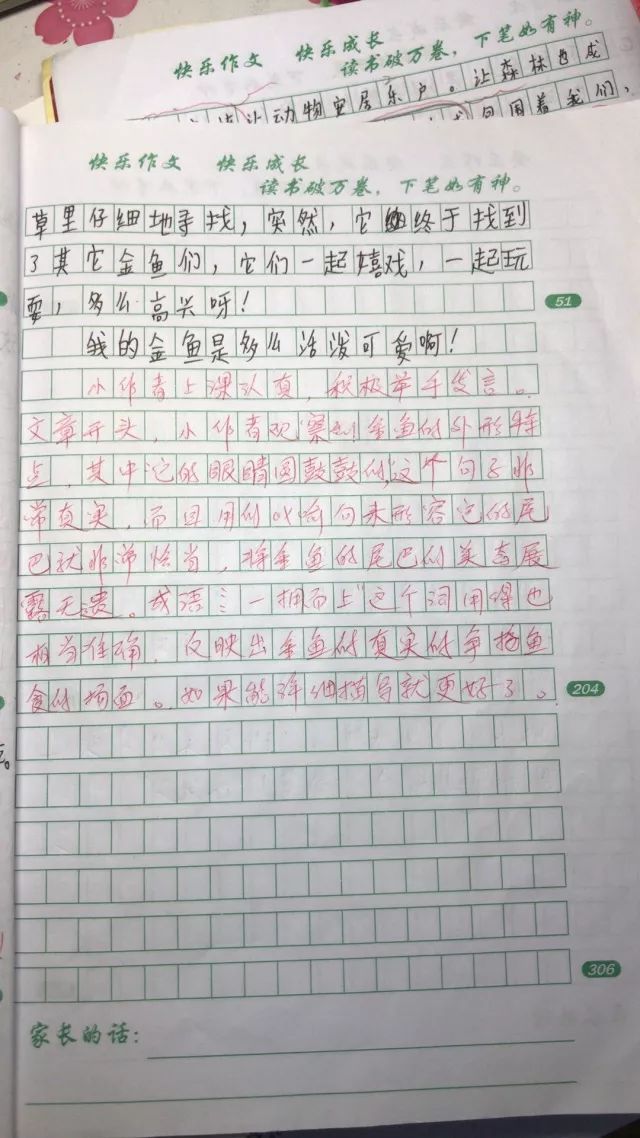 快乐作文 快乐成长
读书破万卷，下笔如有神。
让动物安居乐户。让森林也成
围着我们，
快乐作文 快乐成长
读书破万卷，下笔如有神。
草里仔细地寻找，突然，它终于找到
了其它金鱼们，它们一起嬉戏，一起玩
耍，多么高兴呀！
51
我的金鱼是多么活泼可爱啊！
小作者上课认真，积极举手发言。
文章开头，小作者观察到金鱼的外形特
点，其中它的眼睛圆鼓鼓的，这个句子非
常真实，而且用的比喻句来形容它的尾
巴就非常恰当，将金鱼的尾巴的美态展
露无遗。成语：一拥而上"这个词用得也
相当准确，反映出金鱼的真实的争抢鱼
食的场面。如果能详细描写就更好了。
204
306
家长的话：